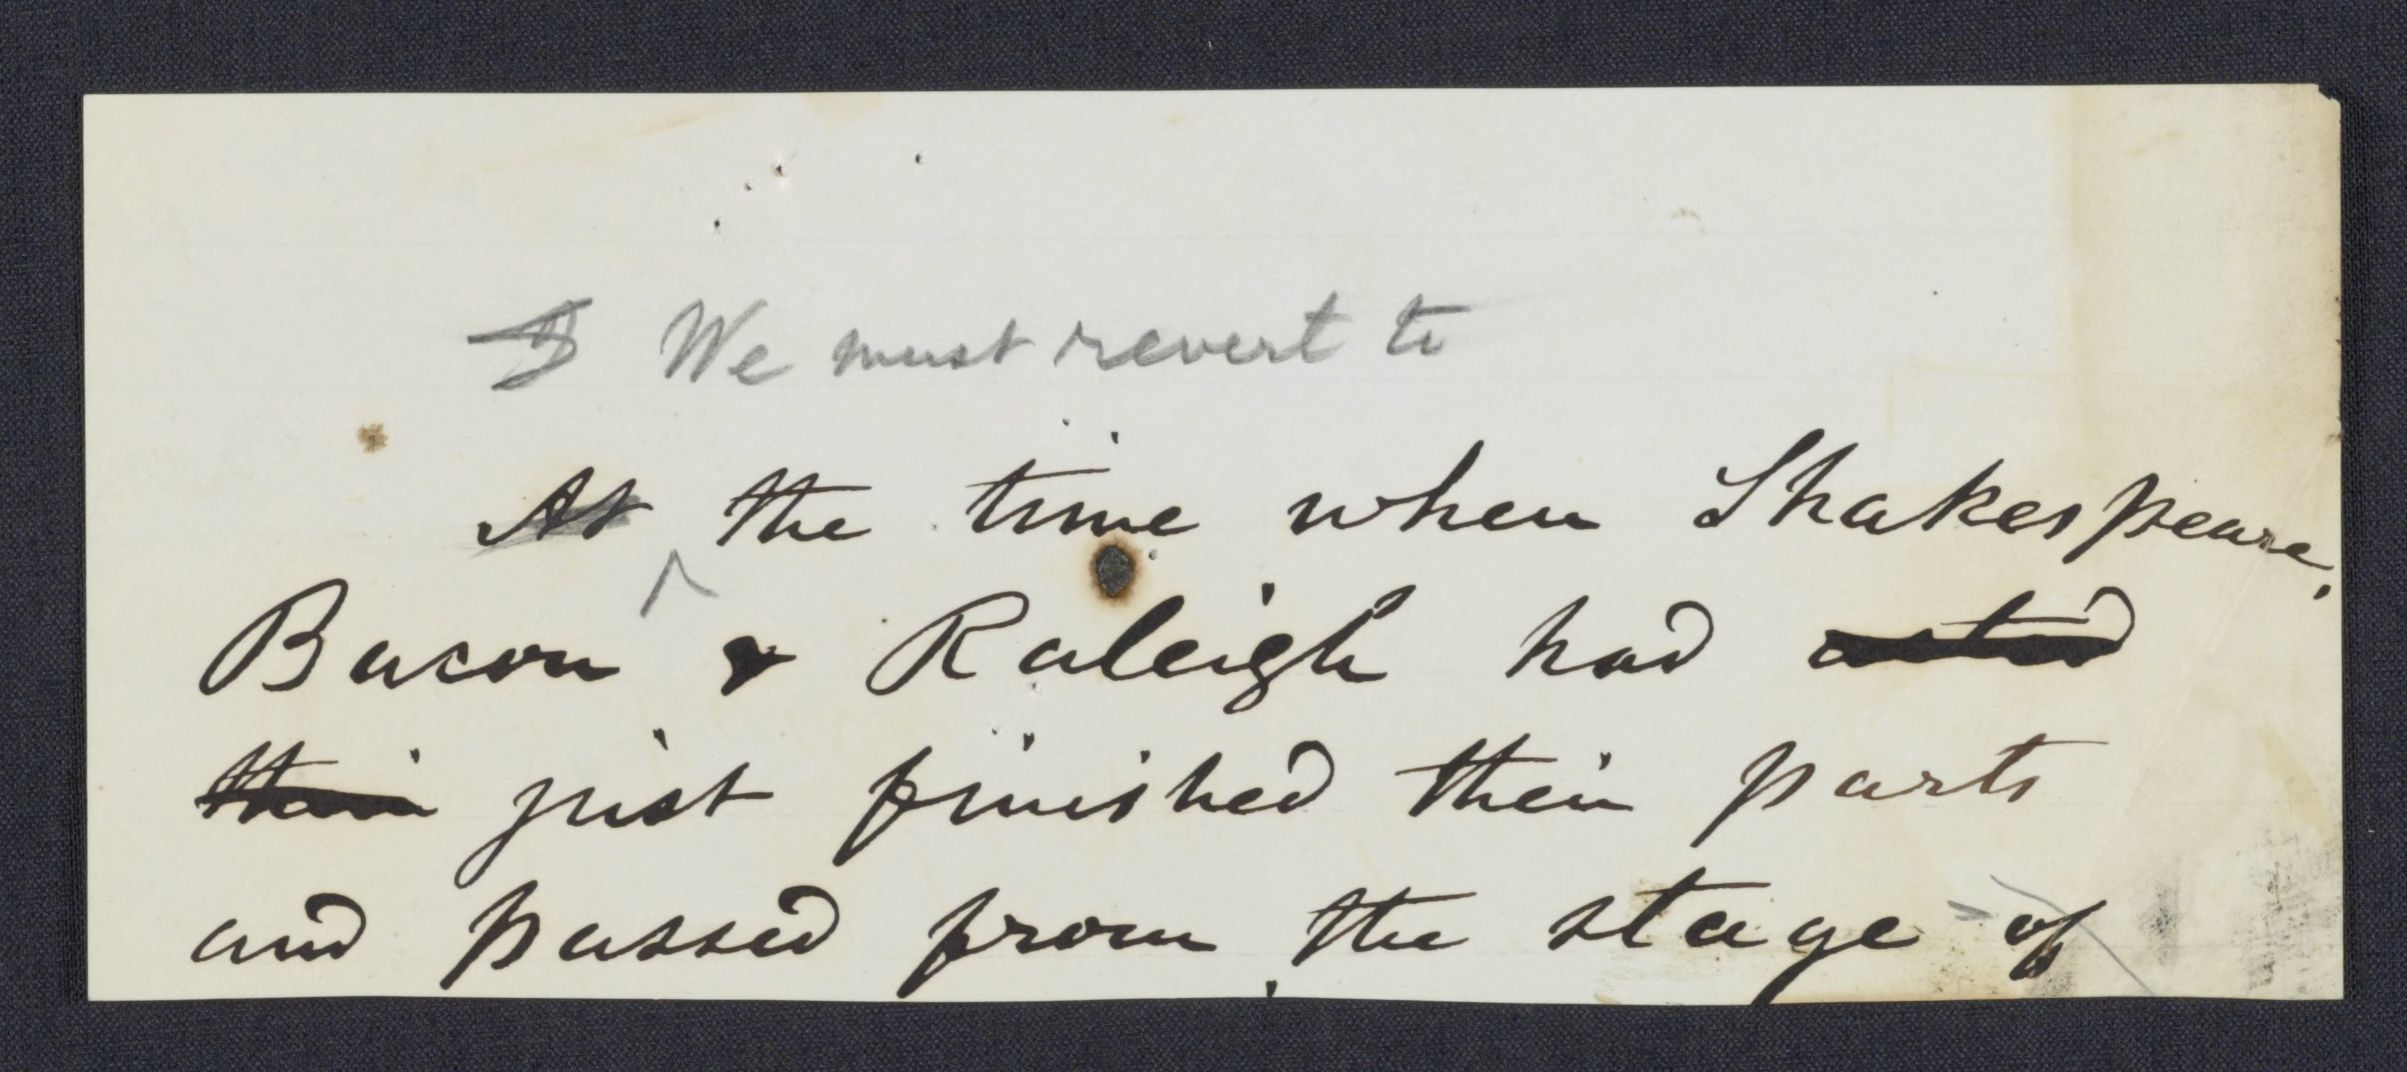 We must revert to
At the time when Shakespeare,
Bacon & Raleigh had acted
their just finished their parts
and passed from the stage of